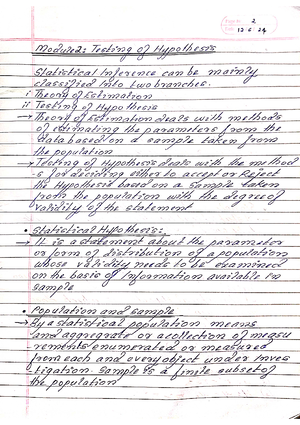 Page No. 2
Date 12.6.24
Module 2: Testing of Hypothesis
Statistical Inference can be mainly
classified into two branches.
i Theory of Estimation
ii Testing of Hypothesis
→ Theory of Estimation deals with methods
of estimating the parameters from the
data based on a sample taken from
the population
→ Testing of Hypothesis deals with the method
-s for deciding either to accept or Reject
the Hypothesis based on a sample taken
from the population with the degree of
validity of the statement
• Statistical Hypothesis:
→ It is a statement about the parameter
or form of distribution of a population
whose validity needs to be examined
on the basis of Information available in
sample
• Population and sample
→ By a statistical population means
and aggregate or a collection of measu
rements enumerated or measured
from each and every object under Inves
tigation. Sample is a finite subset of
the population